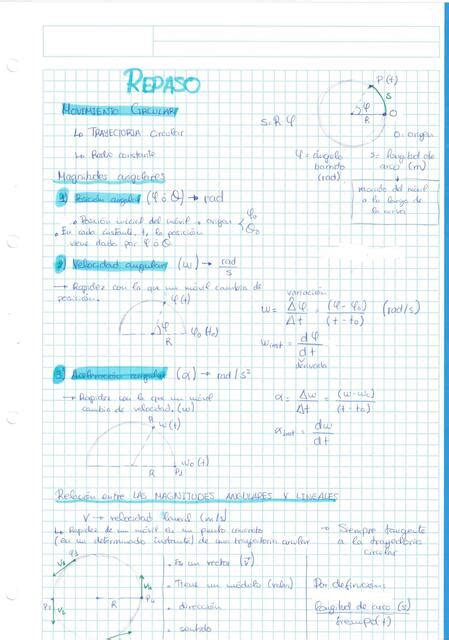 REPASO
P(t)
MOVIMIENTO CIRCULAR
S
S = R φ
φ
R
O
↳ TRAYECTORIA circular
O: origen
↳ Radio constante
φ = ángulo barrido (rad)
s = longitud de arco (m)
recorrido del móvil a lo largo de la curva
Magnitudes angulares
1) Posición angular (φ ó θ) → rad
• Posición inicial del móvil → origen φ₀ θ₀
• En cada instante, t, la posición
viene dada por φ ó θ
2) Velocidad angular (ω) → rad/s
→ Rapidez con la que un móvil cambia de
posición.
φ(t)
φ
R
φ₀ (t₀)
variación
ω = Δφ/Δt = (φ-φ₀)/(t-t₀) (rad/s)
ω inst = dφ/dt
derivada
3) Aceleración angular (α) → rad/s²
→ Rapidez con la que un móvil
cambia de velocidad. (ω)
α = Δω/Δt = (ω-ω₀)/(t-t₀)
α inst = dω/dt
ω(t)
ω₀(t)
R
Relación entre LAS MAGNITUDES ANGULARES Y LINEALES
V → velocidad lineal (m/s)
↳ Rapidez de un móvil en un punto concreto
(en un determinado instante) de una trayectoria circular
→ Siempre tangente
a la trayectoria
circular
• Es un vector (v⃗)
• Tiene un módulo (valor)
• dirección
• sentido
R
P₄
Por definición:
longitud de arco (s)
tiempo (t)